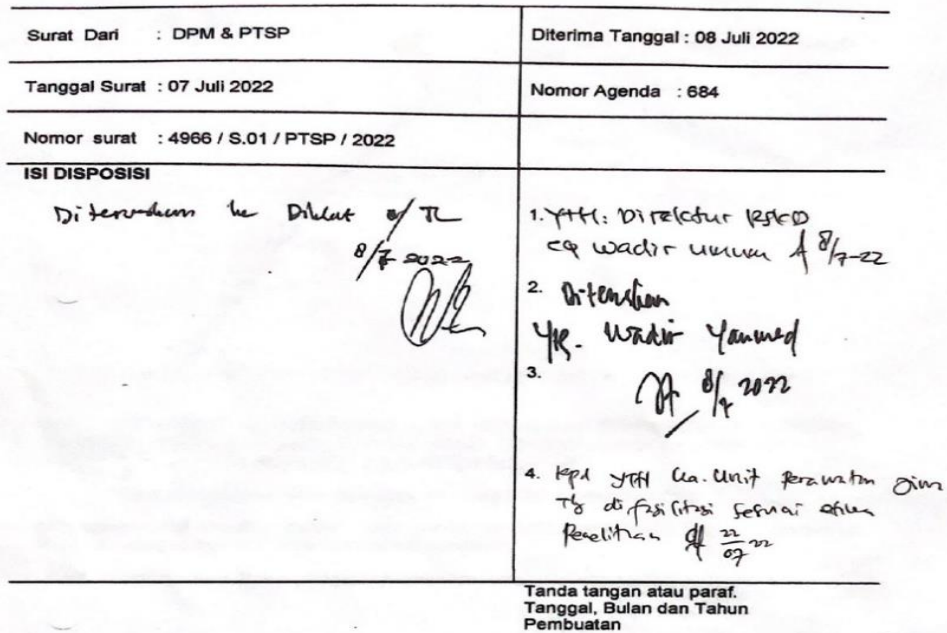 Surat Dari : DPM & PTSP
Diterima Tanggal : 08 Juli 2022
Tanggal Surat : 07 Juli 2022
Nomor Agenda : 684
Nomor surat : 4966 / S.01 / PTSP / 2022
ISI DISPOSISI
Diteruskan ke Diklat u/ TL
8/7 2022
1. YTH: Direktur RSKD
cq wadir umum 8/7-22
2. Diteruskan
Yth. Wadir Yanmed
3.
8/7 2022
4. Kpd YTH Ka. Unit Perawatan Jiwa
di fasilitasi sesuai etika
Penelitian 22/07 22
Tanda tangan atau paraf.
Tanggal, Bulan dan Tahun
Pembuatan